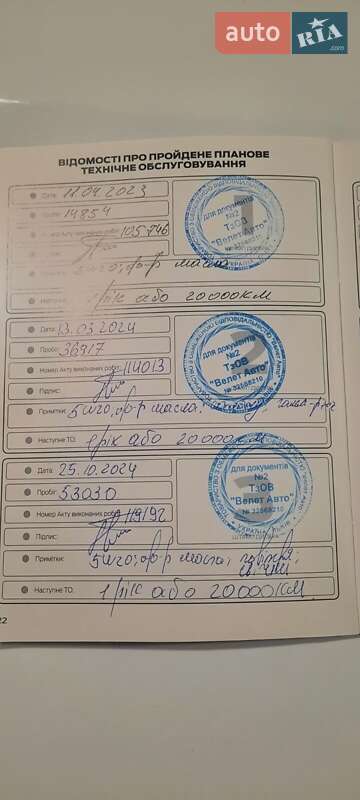 auto RIA
.com
ВІДОМОСТІ ПРО ПРОЙДЕНЕ ПЛАНОВЕ
ТЕХНІЧНЕ ОБСЛУГОВУВАННЯ
Дата: 11.04.2023
14854
105746
5w20; ф-р масла
Наступне 1 рік або 20000км
для документів
№2
ТзОВ
"Велет Авто"
Дата: 13.03.2024
Пробіг: 36917
Номер Акту виконаних робіт: 114013
Підпис:
Примітки: 5w20; ф-р масла;
Наступне ТО: 1 рік або 20000км
для документів
№2
ТзОВ
"Велет Авто"
№ 32568210
Дата: 25.10.2024
Пробіг: 53030
Номер Акту виконаних робіт: 119192
Підпис:
Примітки: 5w20; ф-р масла;
свічки
Наступне ТО: 1 рік або 20000км.
для документів
№2
ТзОВ
"Велет Авто"
№ 32568210
22